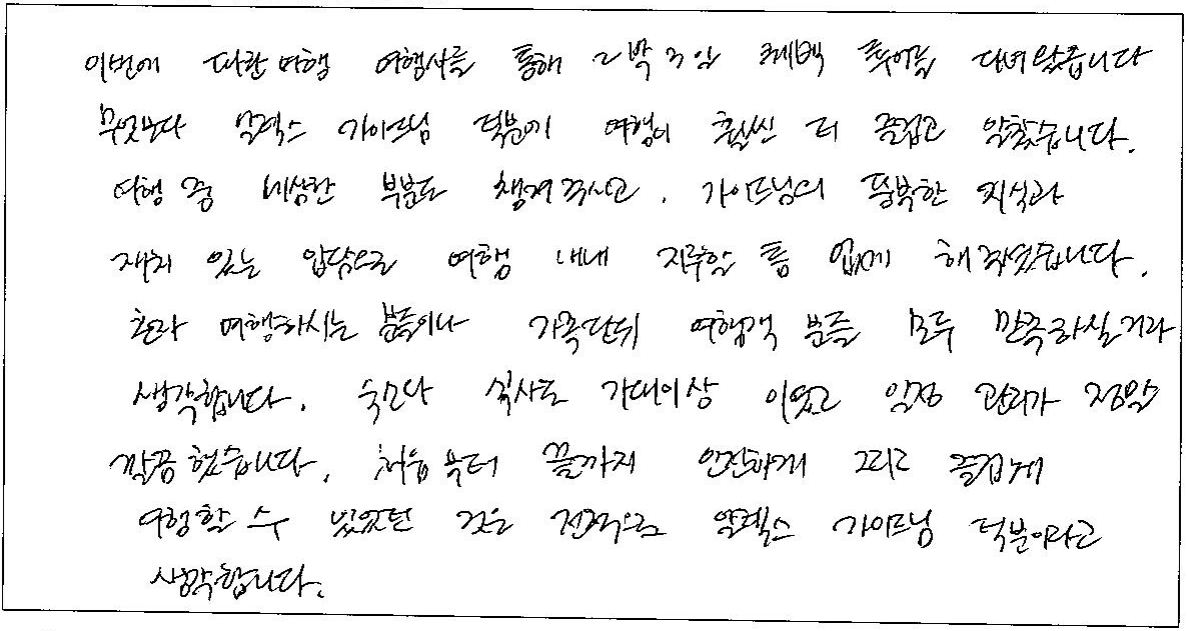 이번에 파란여행 여행사를 통해 2박 3일 퀘백 투어를 다녀왔습니다
무엇보다 알렉스 가이드님 덕분에 여행이 훨씬 더 즐겁고 알찼습니다.
여행 중 세심한 부분도 챙겨주시고, 가이드님의 풍부한 지식과
재치 있는 입담으로 여행 내내 지루할 틈 없게 해주셨습니다.
혼자 여행하시는 분들이나 가족단위 여행객 분들 모두 만족하실거라
생각합니다. 숙소나 식사도 기대이상 이었고 일정 관리가 정말
깔끔했습니다. 처음부터 끝까지 안전하게 그리고 즐겁게
여행할 수 있었던 것은 전적으로 알렉스 가이드님 덕분이라고
생각합니다.